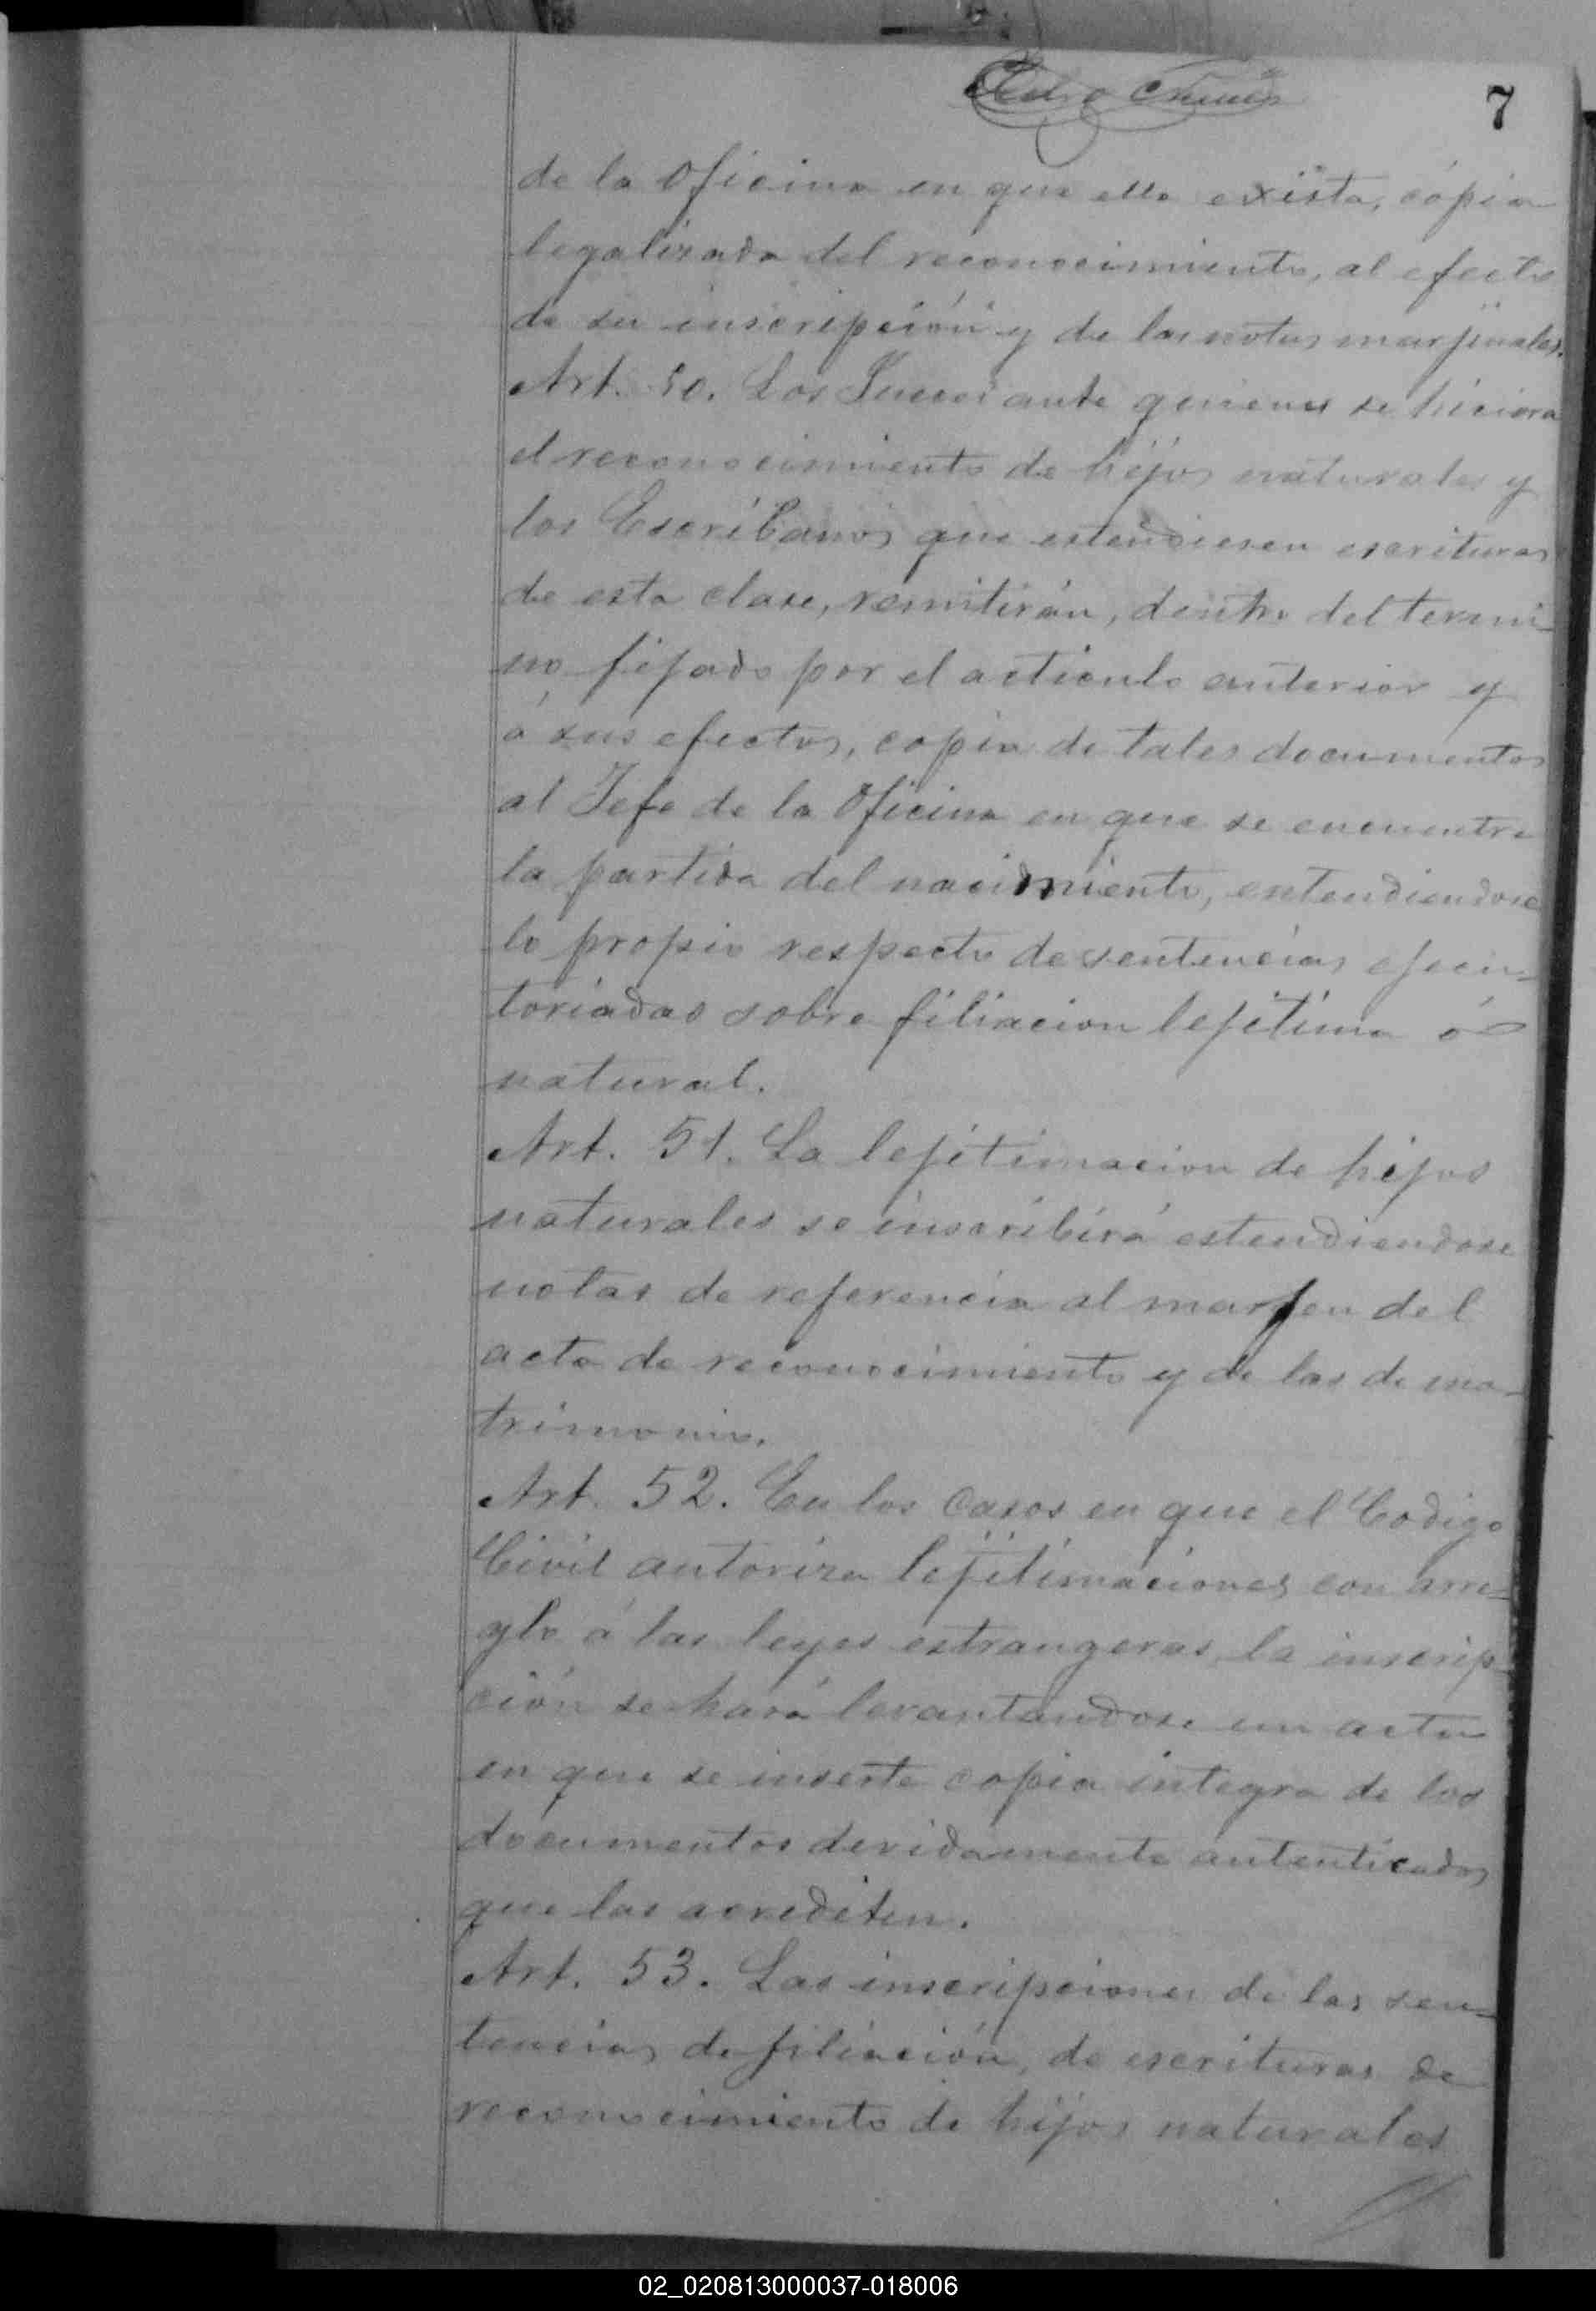 7
de la Oficina en que ella exista, cópia
legalizada del reconocimiento, al efecto
de su inscripción y de las notas marjinales.
Art. 50. Los Jueces ante quienes se hiciera
el reconocimiento de hijos naturales y
los Escribanos que estendiesen escrituras
de esta clase, remitirán, dentro del termi-
no fijado por el articulo anterior y
á sus efectos, copia de tales documentos
al Jefe de la Oficina en que se encuentre
la partida del nacimiento, entendiendose
lo propio respecto de sentencias ejecu-
toriadas sobre filiacion lejitima ó
natural.
Art. 51. La lejitimacion de hijos
naturales se inscribirá estendiendose
notas de referencia al marjen del
acta de reconocimiento y de las de ma-
trimonio.
Art. 52. En los casos en que el Codigo
Civil autoriza lejitimaciones con arre-
glo á las leyes estrangeras la inscrip-
ción se hará levantandose un acta
en que se inserte copia integra de los
documentos devidamente autenticados
que las acrediten.
Art. 53. Las inscripciones de las sen-
tencias de filiación, de escrituras de
reconocimiento de hijos naturales
02_020813000037-018006